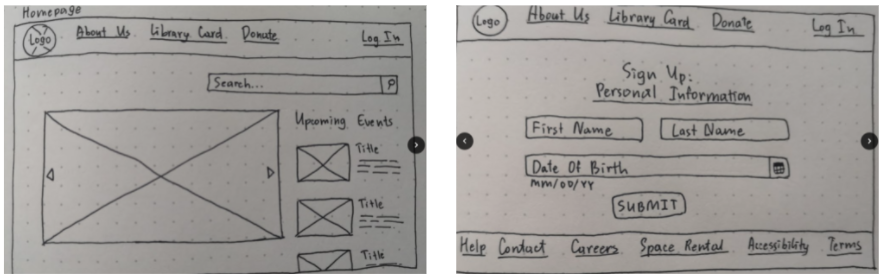 Homepage
Logo About Us Library Card Donate Log In
Search...
Upcoming Events
Title
Title
Title
Logo About Us Library Card Donate Log In
Sign Up:
Personal Information
First Name Last Name
Date Of Birth
mm/DD/YY
SUBMIT
Help Contact Careers Space Rental Accessibility Terms